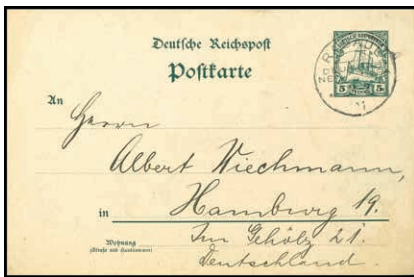 Deutsche Reichspost
Postkarte
An
Herrn
Albert Wiechmann,
in Hamburg 19.
Wohnung
(Straße und Hausnummer)
Im Gehölz 21.
Deutschland.
5 5